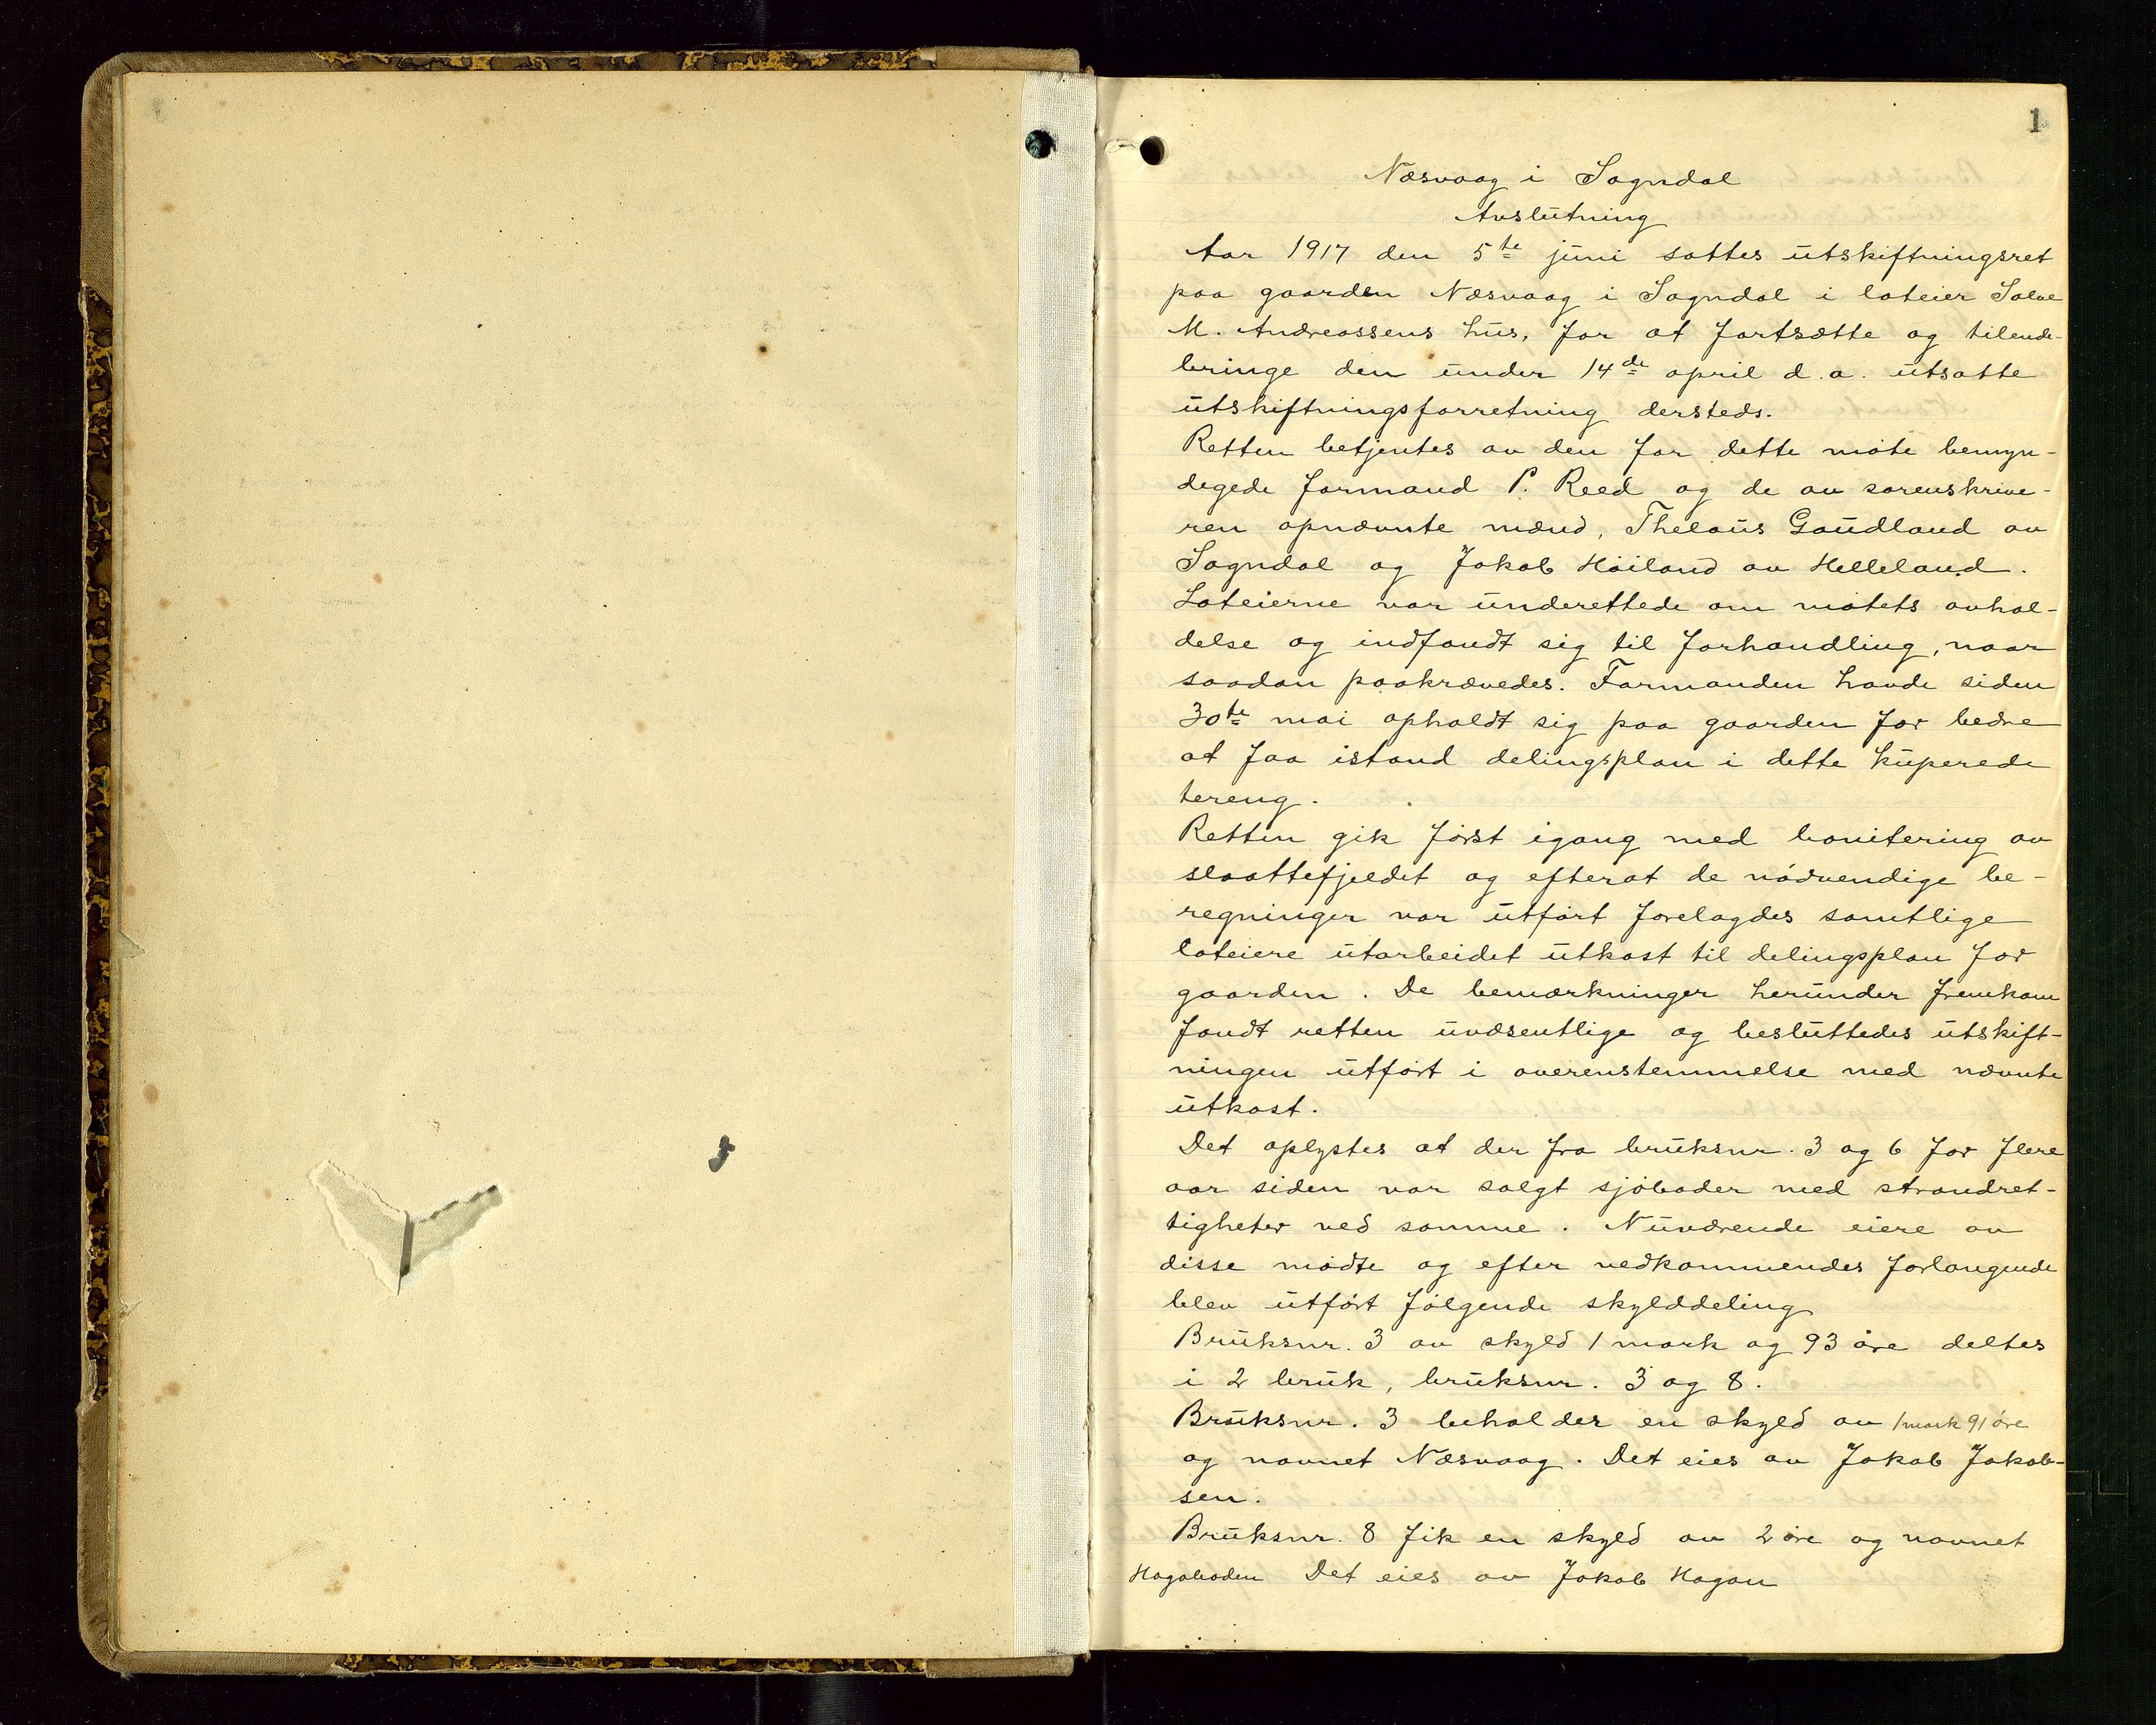 1
Næsvaag i Sogndal
Avslutning
Aar 1917 den 5te juni sattes utskiftningsret
paa gaarden Næsvaag i Sogndal i loteier Salve
M. Andreassens hus, for at fortsætte og tilende-
bringe den under 14de april d.a. utsatte
utskiftningsforretning dersteds.
Retten betjentes av den for dette møte bemyn-
degede formand P. Reed og de av sorenskrive-
ren opnævnte mænd, Theleus Gaudland av
Sogndal og Jakob Høiland av Helleland.
Loteierne var underettede om møtets avhol-
delse og indfandt sig til forhandling, naar
saadan paakrævedes. Formanden havde siden
30te mai opholdt sig paa gaarden for bedre
at faa istand delingsplan i dette kuperede
tereng.
Retten gik først igang med bonitering av
slaattefjeldet og efterat de nødvendige be-
regninger var utført forelagdes samtlige
loteiere utarbeidet utkast til delingsplan for
gaarden. De bemærkninger herunder fremkom
fandt retten uvæsentlige og besluttedes utskift-
ningen utført i overenstemmelse med nævnte
utkast.
Det oplystes at der fra bruksnr. 3 og 6 for flere
aar siden var solgt sjøboder med strandret-
tigheter ved samme. Nuværende eiere av
disse mødte og efter vedkommendes forlangende
blev utført følgende skylddeling
Bruksnr. 3 av skyld 1 mark og 93 øre deltes
i 2 bruk, bruksnr. 3 og 8.
Bruksnr. 3 beholder en skyld av 1 mark 91 øre
og navnet Næsvaag. Det eies av Jakob Jakob-
sen.
Bruksnr. 8 fik en skyld av 2 øre og navnet
Hagaboden Det eies av Jakob Hagan